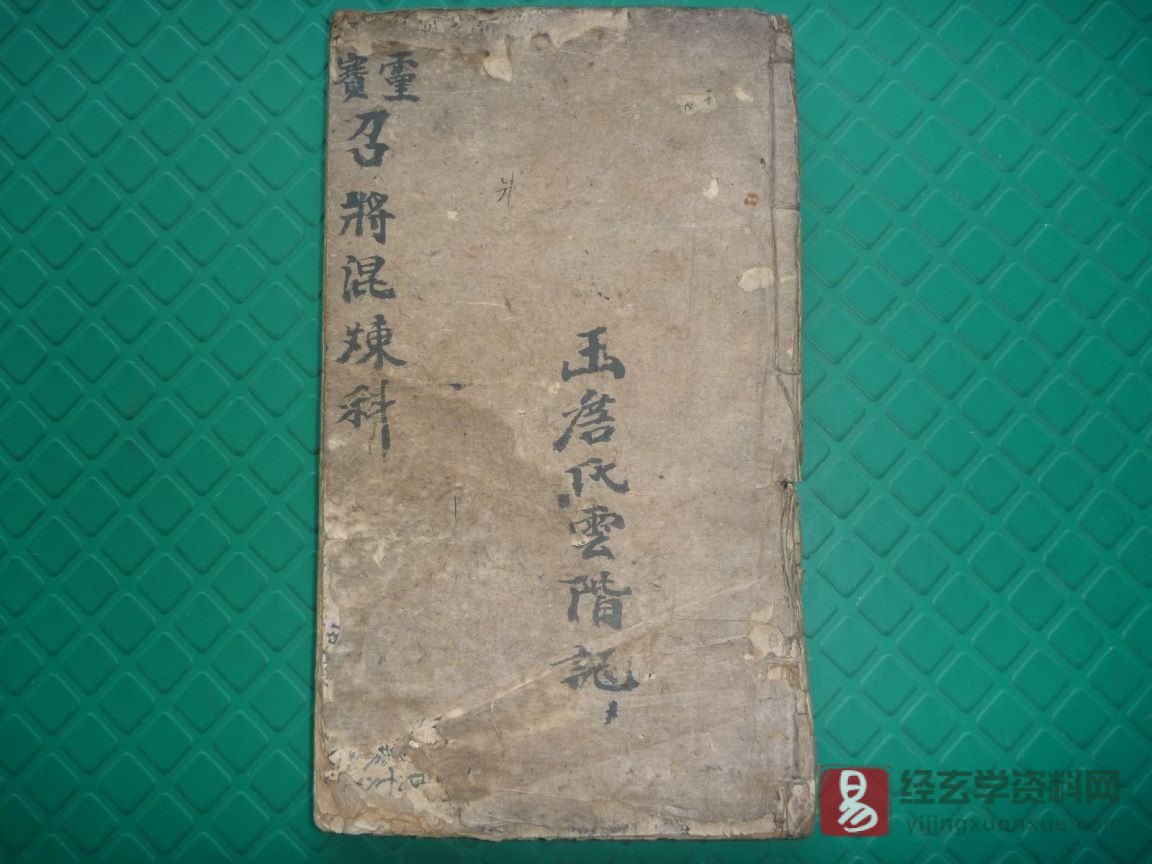 靈寶
召將混煉科
玉詹氏雲階記
易
经玄学资料网
yijingxuanxue.com